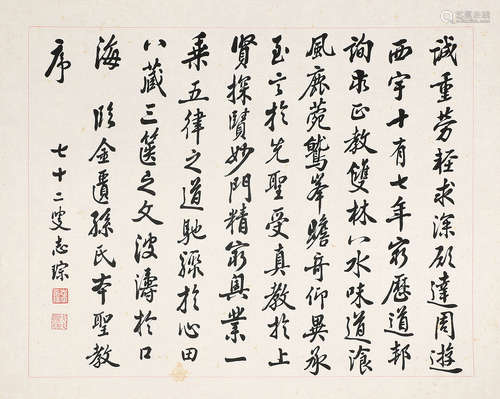 誠重勞輕求深願達周遊
西宇十有七年窮歷道邦
詢求正教雙林八水味道湌
風鹿菀鷲峯瞻奇仰異承
至言於先聖受真教於上
賢探賾妙門精窮奧業一
乘五律之道馳驟於心田
八藏三篋之文波濤於口
海 臨金匱孫氏本聖教
序
七十二叟志琮